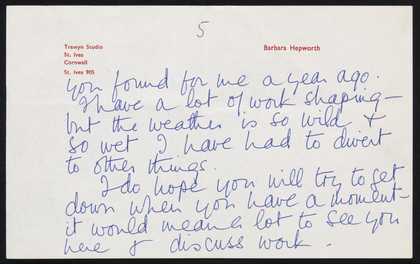 5
Trewyn Studio
St. Ives
Cornwall
St. Ives 905
Barbara Hepworth
you found for me a year ago.
I have a lot of work shaping -
but the weather is so wild &
so wet I have had to divert
to other things.
I do hope you will try to get
down when you have a moment -
it would mean a lot to see you
here & discuss work.